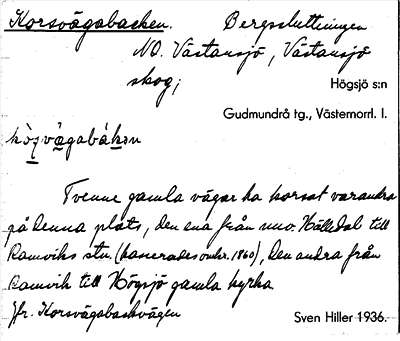 Korsvägabacken. Bergssluttningen
NO. Västansjö, Västansjö
skog;
Högsjö s:n
Gudmundrå tg., Västernorrl. l.
Tvenne gamla vägar ha korsat varandra
på denna plats, den ena från nuv. Hälledal till
Ramviks stn. (kasserades omkr. 1860), den andra från
Ramvik till Högsjö gamla kyrka
Jfr. Korsvägabackvägen
Sven Hiller 1936.